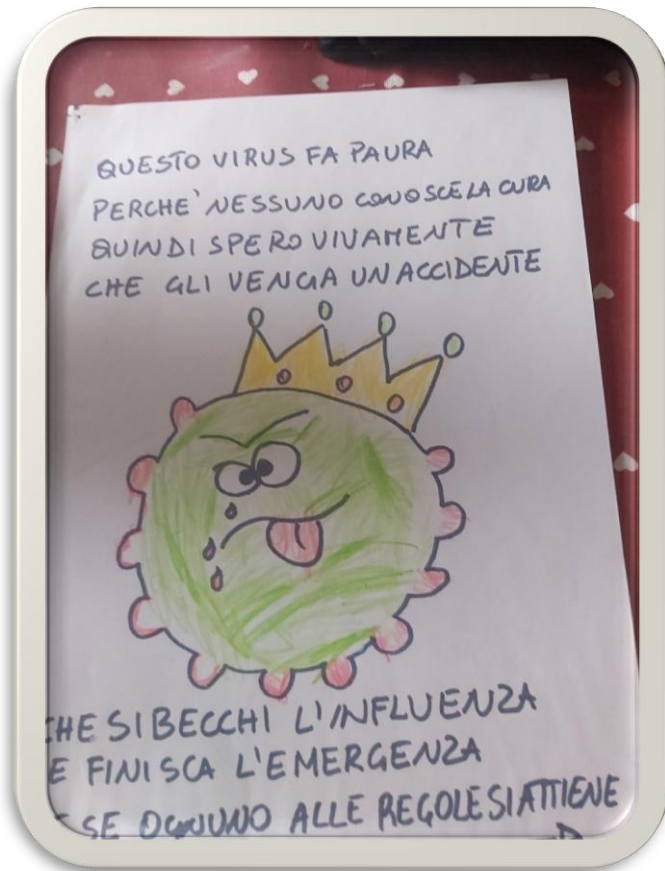 QUESTO VIRUS FA PAURA
PERCHE' NESSUNO CONOSCE LA CURA
QUINDI SPERO VIVAMENTE
CHE GLI VENGA UN ACCIDENTE
CHE SI BECCHI L'INFLUENZA
E FINISCA L'EMERGENZA
SE OGNUNO ALLE REGOLE SI ATTIENE